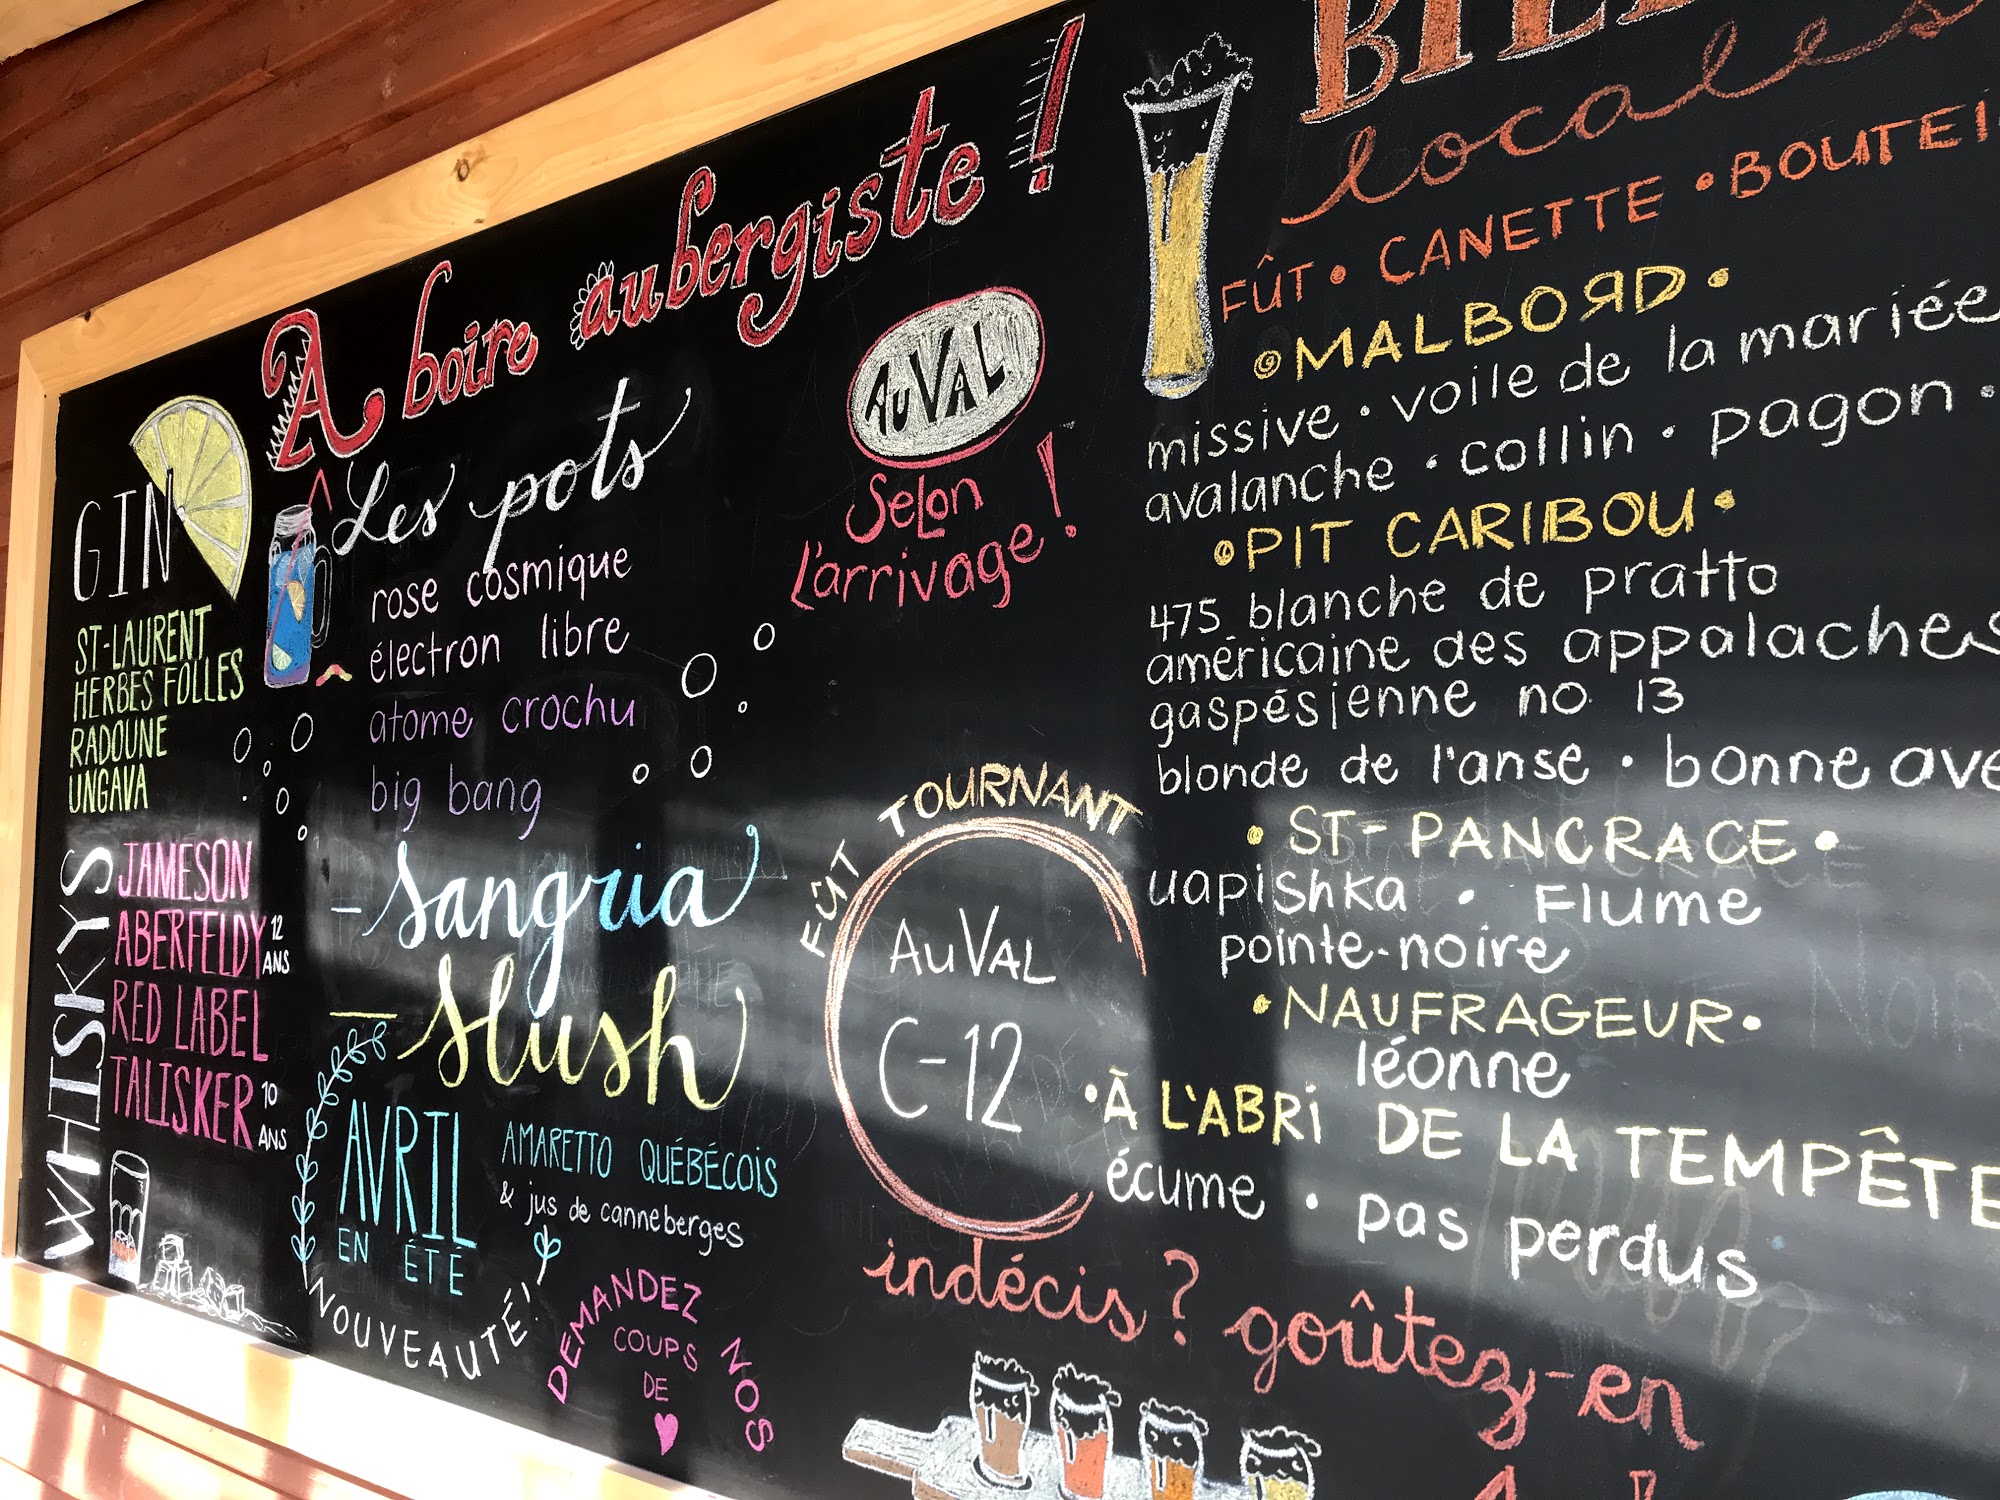 A boire aubergiste !
GIN
ST-LAURENT
HERBES FOLLES
RADOUNE
UNGAVA
WHISKYS
JAMESON
ABERFELDY 12 ANS
RED LABEL
TALISKER 10 ANS
Les pots
rose cosmique
électron libre
atome crochu
big bang
- Sangria
- Slush
AVRIL
EN ÉTÉ
AMARETTO QUÉBÉCOIS
& jus de canneberges
NOUVEAUTÉ!
DEMANDEZ NOS
COUPS
DE
AUVAL
SELON
L'arrivage!
FÛT TOURNANT
AUVAL
C-12
locales
FÛT • CANETTE •
• MALBOЯD •
missive • voile de la mariée
avalanche • collin • pagon •
• PIT CARIBOU •
475 blanche de pratto
américaine des appalaches
gaspésienne no 13
blonde de l'anse • bonne
• ST-PANCRACE •
uapishka • Flume
pointe-noire
• NAUFRAGEUR •
léonne
• À L'ABRI DE LA TEMPÊTE
écume • pas perdus
indécis? goûtez-en